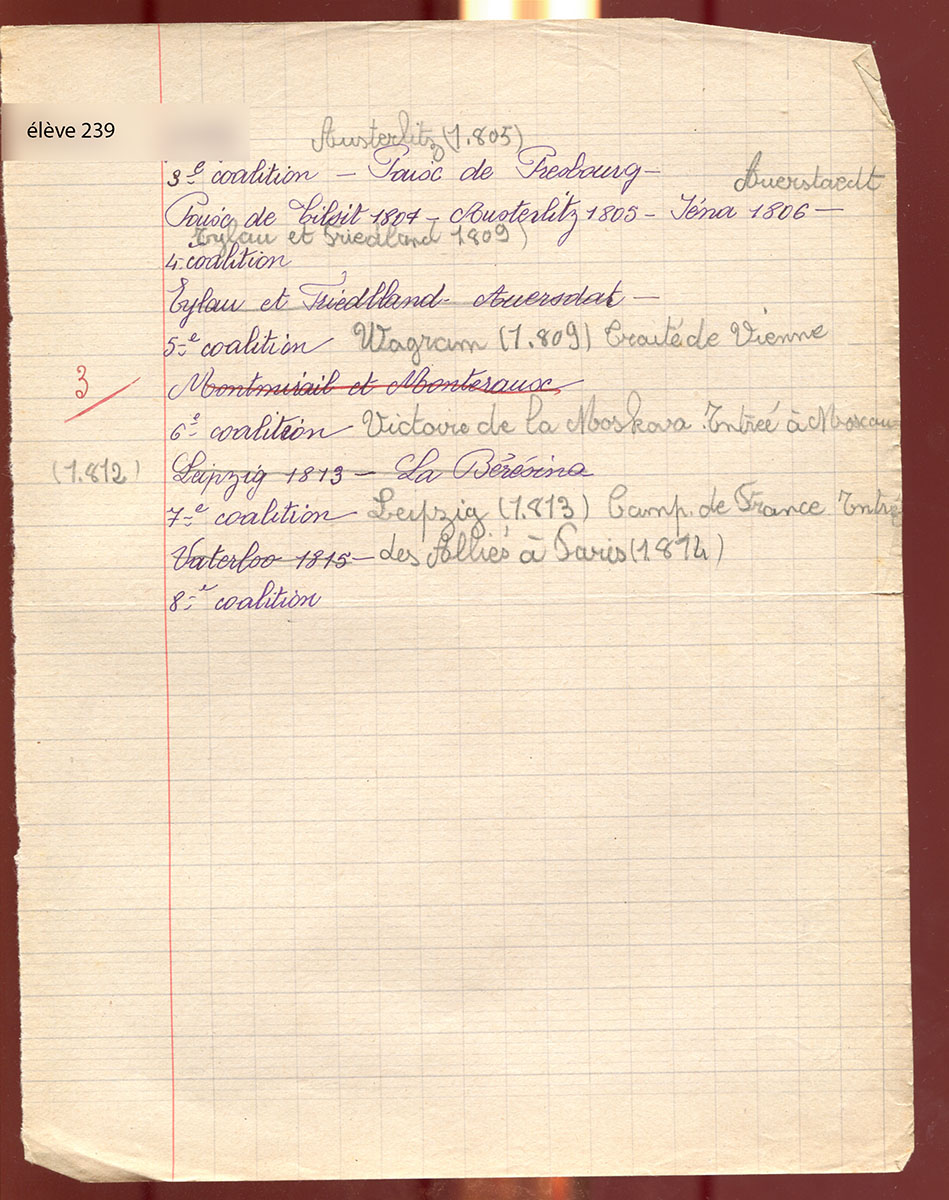 élève 239
Austerlitz (1.805)
3e coalition – Paix de Presbourg –
Auerstaedt
Paix de Tilsit 1807 – Austerlitz 1805 – Iéna 1806 –
Eylau et Friedland 1809)
4e coalition
Eylau et Friedlland – Auersdat –
5e coalition Wagram (1.809) Traité de Vienne
3
Montmirail et Monteraux,
6e coalition Victoire de la Moskova. Entreé à Moscou
(1.812)
Leipzig 1813 – La Bérésina
7e coalition – Leipzig (1.813) Camp. de France Entré
Vaterloo 1815 – des Alliés à Paris (1814)
8e coalition